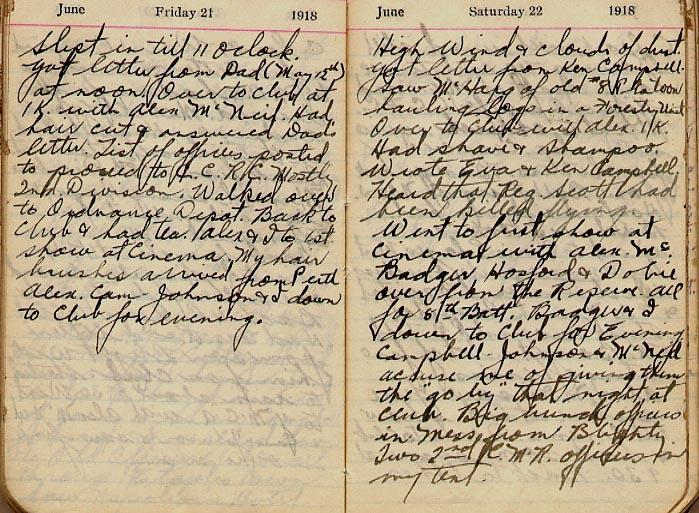 June Friday 21 1918
Slept in till 11 o clock.
Got letter from Dad (May 12th)
at noon. Over to Club at
1 K. with Alex McNeil. Had
hair cut & answered Dad's
letter. List of officers posted
to proceed to C.C.R.C. Mostly
2nd Division. Walked over
to Ordnance Depot. Back to
Club & had tea. Alex & I to 1st
show at Cinema. My hair
brushes arrived from Perth
Alex. Cam Johnson & I down
to Club for evening.
June Saturday 22 1918
High Wind & clouds of dust.
Got letter from Ken Campbell.
Saw McHarg of old #8 Platoon
hauling logs in a Forestry Unit
Over to Club with Alex. 1 K.
Had shave & Shampoo
Wrote Eva & Ken Campbell
Heard that Reg Scott had
been killed flying.
Went to first show at
Cinema with Alex. Mc.
Badger Hosford & Dobie
over from the Reserve all
for 8th Batt. Badger & I
down to Club for Evening
Campbell. Johnson & McNeil
accuse me of giving them
the "go by" that night at
Club. Big bunch officers
in Mess from Blighty
Two 2nd C.M.R. officers in
my tent.